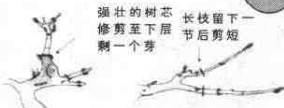 强壮的树芯
修剪至下层
剩一个芽
长枝留下一
节后剪短